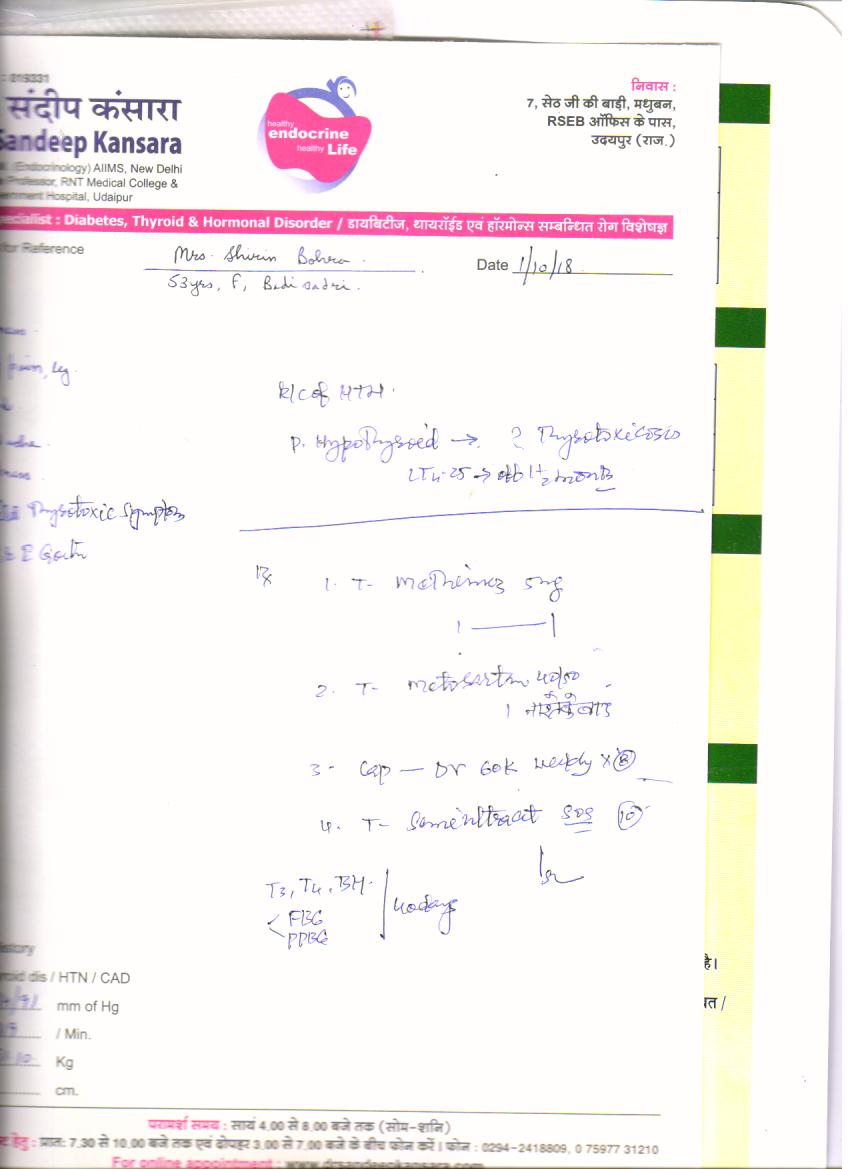 : 019331
संदीप कंसारा
Sandeep Kansara
(Endocrinology) AIIMS, New Delhi
Professor, RNT Medical College &
Hospital, Udaipur
healthy
endocrine
healthy Life
निवास :
7, सेठ जी की बाड़ी, मधुबन,
RSEB ऑफिस के पास,
उदयपुर (राज.)
: Diabetes, Thyroid & Hormonal Disorder / डायबिटीज, थायरॉईड एवं हॉरमोन्स सम्बन्धित रोग विशेषज्ञ
for Reference
Mrs. Shirin Bohra.
Date 1/10/18
53yrs, F, Badi sadri.
pain, leg
K/C of HTN.
P. Hypothyroid → ? Thyrotoxicosis
LT4-25 → off 1½ months
Thyrotoxic symptoms
Rx
1. T- Methimez 5mg
1 — 1
2. T- Metosartan 40/50
1 नाश्ते के बाद
3- Cap — DV 60K weekly x 8
4. T- sos 10
T3, T4, TSH.
FBG
PPBG
40days
dis / HTN / CAD
/91 mm of Hg
/ Min.
Kg
cm.
है।
परामर्श समय : सायं 4.00 से 8.00 बजे तक (सोम-शनि)
हेतु : प्रात: 7.30 से 10.00 बजे तक एवं दोपहर 3.00 से 7.00 बजे के बीच फोन करें। फोन : 0294-2418809, 0 75977 31210
For online appointment : www.drsandeepkansara.com